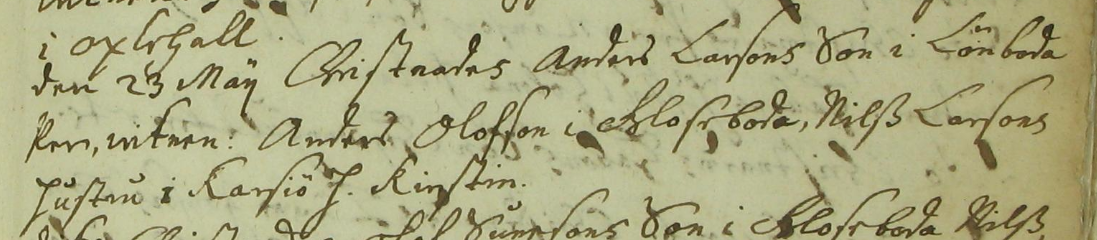 i Oxlehall.
den 23 Maÿ Christnades Anders Larsons Son i Lönboda
Per, witnen: Anders Olofson i Kloseboda, Nilß Larsons
hustru i Karsiö h. Kirstin.
Sunesons Son i Kloseboda Nilß